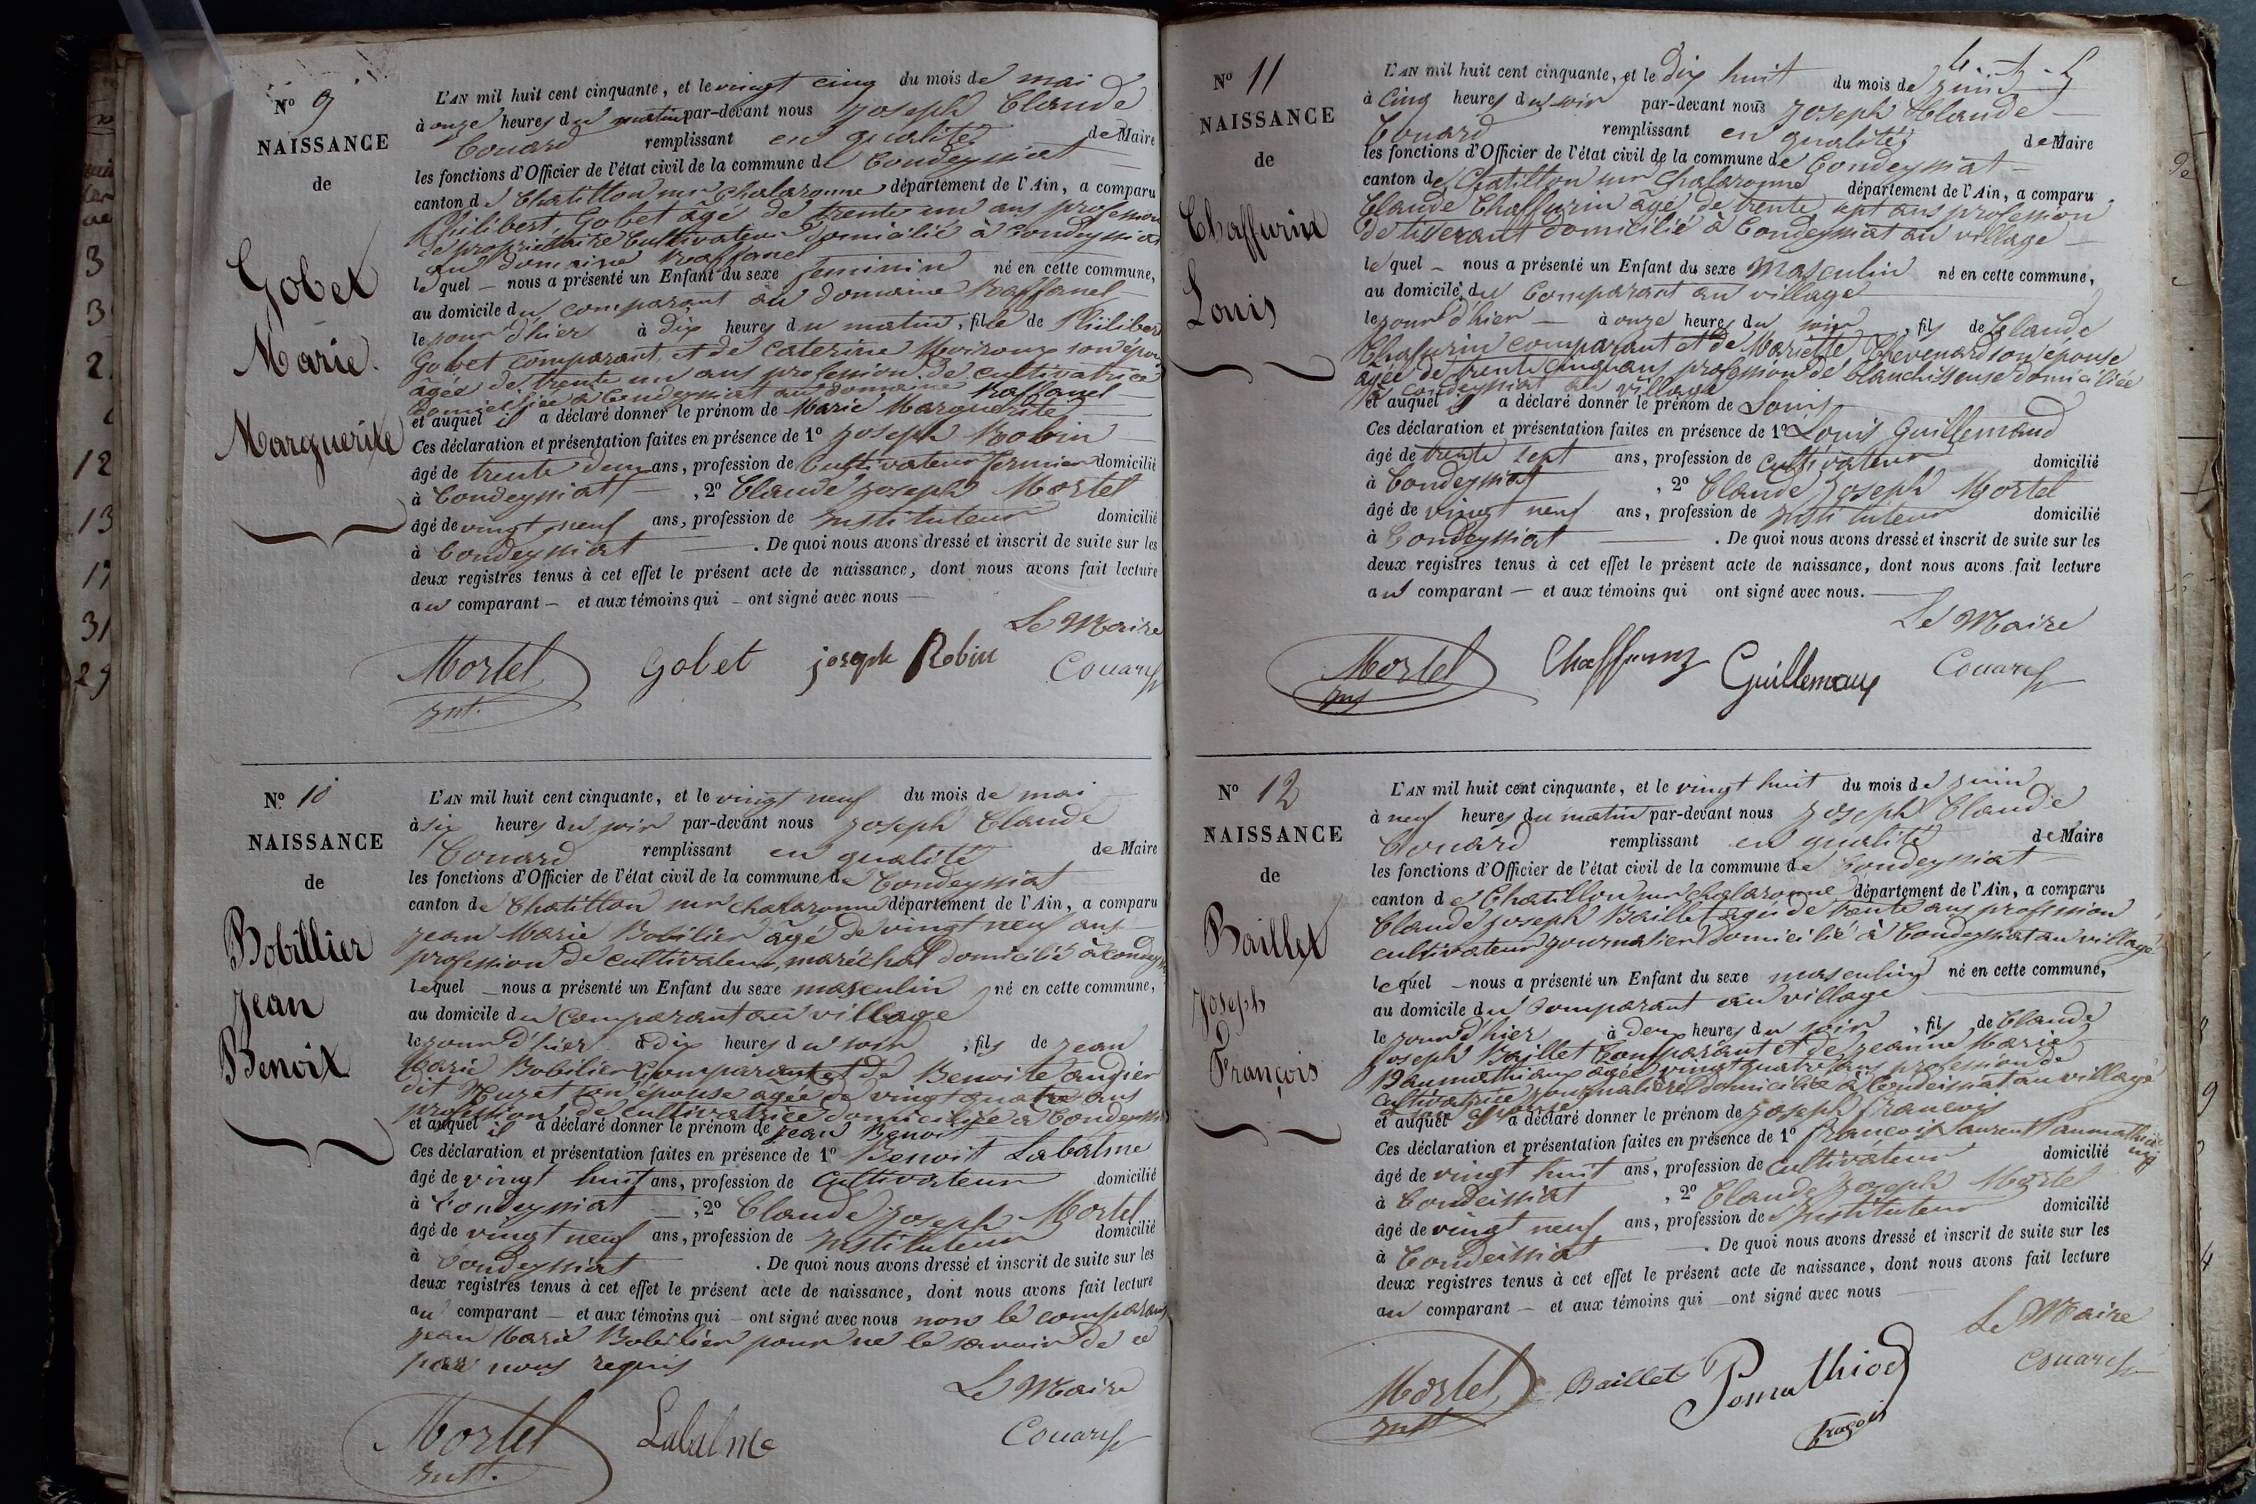 N° 9
NAISSANCE
de
Gobet
Marie
Marguerite
L'AN mil huit cent cinquante, et le vingt cinq du mois de mai
à onze heures du matin par-devant nous Joseph Claude
Couard remplissant en qualité de Maire
les fonctions d'Officier de l'état civil de la commune de Condeyssiat
canton de Chatillon sur Chalaronne département de l'Ain, a comparu
Philibert Gobet âgé de trente un ans profession
de propriétaire Cultivateur domicilié à Condeyssiat
au domaine Raffanel
lequel nous a présenté un Enfant du sexe feminin né en cette commune,
au domicile du comparant au domaine Raffanel
le jour d'hier à dix heures du matin, fille de Philibert
Gobet comparant, et de Caterine son épouse
âgée de trente un ans profession de cultivatrice
domiciliée à Condeyssiat au domaine Raffanel
et auquel il a déclaré donner le prénom de Marie Marguerite
Ces déclaration et présentation faites en présence de 1° Joseph Robin
âgé de trente deux ans, profession de Cultivateur fermier domicilié
à Condeyssiat , 2° Claude Joseph Mortel
âgé de vingt neuf ans, profession de Instituteur domicilié
à Condeyssiat . De quoi nous avons dressé et inscrit de suite sur les
deux registres tenus à cet effet le présent acte de naissance, dont nous avons fait lecture
au comparant et aux témoins qui ont signé avec nous
Le Maire
Mortel Gobet joseph Robin Couard
Inst.
N° 10
NAISSANCE
de
Bobillier
Jean
Benoit
L'AN mil huit cent cinquante, et le vingt neuf du mois de mai
à six heures du soir par-devant nous Joseph Claude
Couard remplissant en qualité de Maire
les fonctions d'Officier de l'état civil de la commune de Condeyssiat
canton de Chatillon sur Chalaronne département de l'Ain, a comparu
Jean Marie Bobilier âgé de vingt neuf ans
profession de cultivateur, maréchal domicilié à Condeyss
lequel nous a présenté un Enfant du sexe masculin né en cette commune,
au domicile du comparant au village
le jour d'hier à dix heures du soir, fils de Jean
Marie Bobilier comparant et de Benoite
dit son épouse agée de vingt quatre ans
profession de cultivatrice domiciliée à Condeyssi
et auquel il a déclaré donner le prénom de Jean Benoit
Ces déclaration et présentation faites en présence de 1° Benoit Labalme
âgé de vingt huit ans, profession de Cultivateur domicilié
à Condeyssiat , 2° Claude Joseph Mortel
âgé de vingt neuf ans, profession de Instituteur domicilié
à Condeyssiat . De quoi nous avons dressé et inscrit de suite sur les
deux registres tenus à cet effet le présent acte de naissance, dont nous avons fait lecture
au comparant et aux témoins qui ont signé avec nous non le comparant
Jean Marie Bobilier pour ne le savoir de ce
par nous requis
Le Maire
Mortel Labalme Couard
Inst.
N° 11
NAISSANCE
de
Chaffurin
Louis
L'AN mil huit cent cinquante, et le dix huit du mois de juin
à cinq heures du soir par-devant nous Joseph Claude
Couard remplissant en qualité de Maire
les fonctions d'Officier de l'état civil de la commune de Condeyssiat
canton de Chatillon sur Chalaronne département de l'Ain, a comparu
Claude Chaffurin âgé de trente sept ans profession
de tisserant domicilié à Condeyssiat au village
lequel nous a présenté un Enfant du sexe Masculin né en cette commune,
au domicile du Comparant au village
le jour d'hier à onze heures du soir, fils de Claude
Chaffurin comparant et de Mariette Chevenard son épouse
âgée de trente cinq ans profession de blanchisseuse domiciliée
à Condeyssiat au village
et auquel il a déclaré donner le prénom de Louis
Ces déclaration et présentation faites en présence de 1° Louis Guillemaud
âgé de trente sept ans, profession de cultivateur domicilié
à Condeyssiat , 2° Claude Joseph Mortel
âgé de vingt neuf ans, profession de Instituteur domicilié
à Condeyssiat . De quoi nous avons dressé et inscrit de suite sur les
deux registres tenus à cet effet le présent acte de naissance, dont nous avons fait lecture
au comparant et aux témoins qui ont signé avec nous.
Le Maire
Mortel Chaffurin Guillemaud Couard
N° 12
NAISSANCE
de
Baillet
Joseph
François
L'AN mil huit cent cinquante, et le vingt huit du mois de juin
à neuf heures du matin par-devant nous Joseph Claude
Couard remplissant en qualité de Maire
les fonctions d'Officier de l'état civil de la commune de Condeyssiat
canton de Chatillon sur Chalaronne département de l'Ain, a comparu
Claude Joseph Baillet agé de trente ans profession
cultivateur journalier domicilié à Condeyssiat au village
lequel nous a présenté un Enfant du sexe masculin né en cette commune,
au domicile du Comparant au village
le jour d'hier à deux heures du soir, fils de Claude
Joseph Baillet Comparant et de Jeanne Marie
agée vingt quatre ans profession de
cultivatrice journalière domiciliée à Condeissiat au village
et auquel il a déclaré donner le prénom de Joseph francois
Ces déclaration et présentation faites en présence de 1° francois Laurent
âgé de vingt huit ans, profession de cultivateur domicilié
à Condeissiat , 2° Claude Joseph Mortel
âgé de vingt neuf ans, profession de Instituteur domicilié
à Condeissiat . De quoi nous avons dressé et inscrit de suite sur les
deux registres tenus à cet effet le présent acte de naissance, dont nous avons fait lecture
au comparant et aux témoins qui ont signé avec nous
Le Maire
Mortel Baillet Pomathiod Couard
Inst